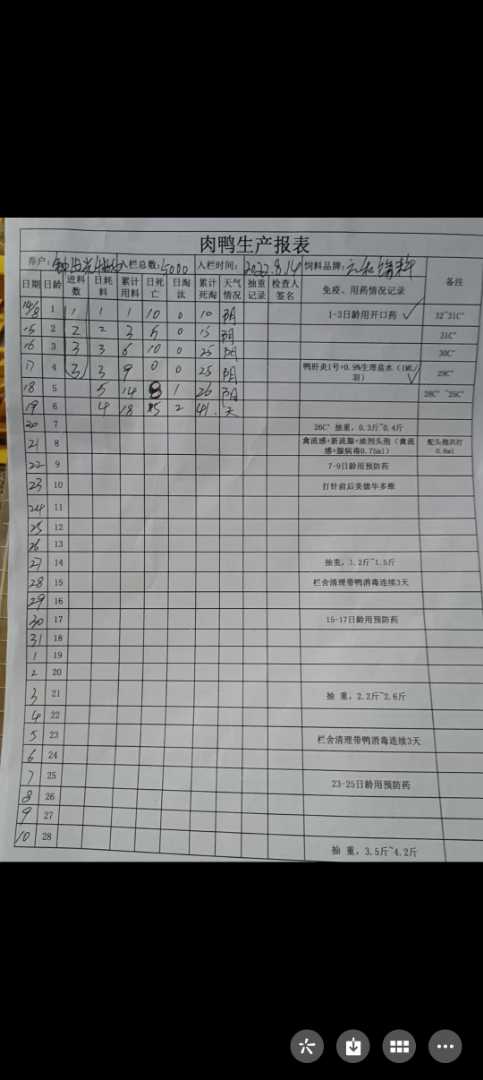 肉鸭生产报表
养户: 入栏总数:5000 入栏时间:2022.8.14 饲料品牌:
日期 日龄 进料数 日耗料 累计用料 日死亡 日淘汰 累计死淘 天气情况 抽重记录 检查人签名 免疫、用药情况记录 备注
14/8 1 1 1 1 10 0 10 阴 1-3日龄用开口药 ✓ 32~31C°
15 2 2 2 3 5 0 15 阴 31C°
16 3 3 3 6 10 0 25 阴 30C°
17 4 3 3 9 0 0 25 阴 鸭肝炎1号+0.9%生理盐水(1ML/羽) ✓ 29C°
18 5 5 14 1 26 阴 28C° ~26C°
19 6 4 18 15 2 41
20 7 26C° 抽重，0.3斤~0.4斤
21 8 禽流感+新流腺+油剂头孢（禽流感+腺病毒0.75ml） 0.8ml
22 9 7-9日龄用预防药
23 10 打针前后美傲华多维
24 11
25 12
26 13
27 14 抽重，1.2斤~1.5斤
28 15 栏舍清理带鸭消毒连续3天
29 16
30 17 15-17日龄用预防药
31 18
1 19
2 20
3 21 抽 重，2.2斤~2.6斤
4 22
5 23 栏舍清理带鸭消毒连续3天
6 24
7 25 23-25日龄用预防药
8 26
9 27
10 28 抽 重，3.5斤~4.2斤